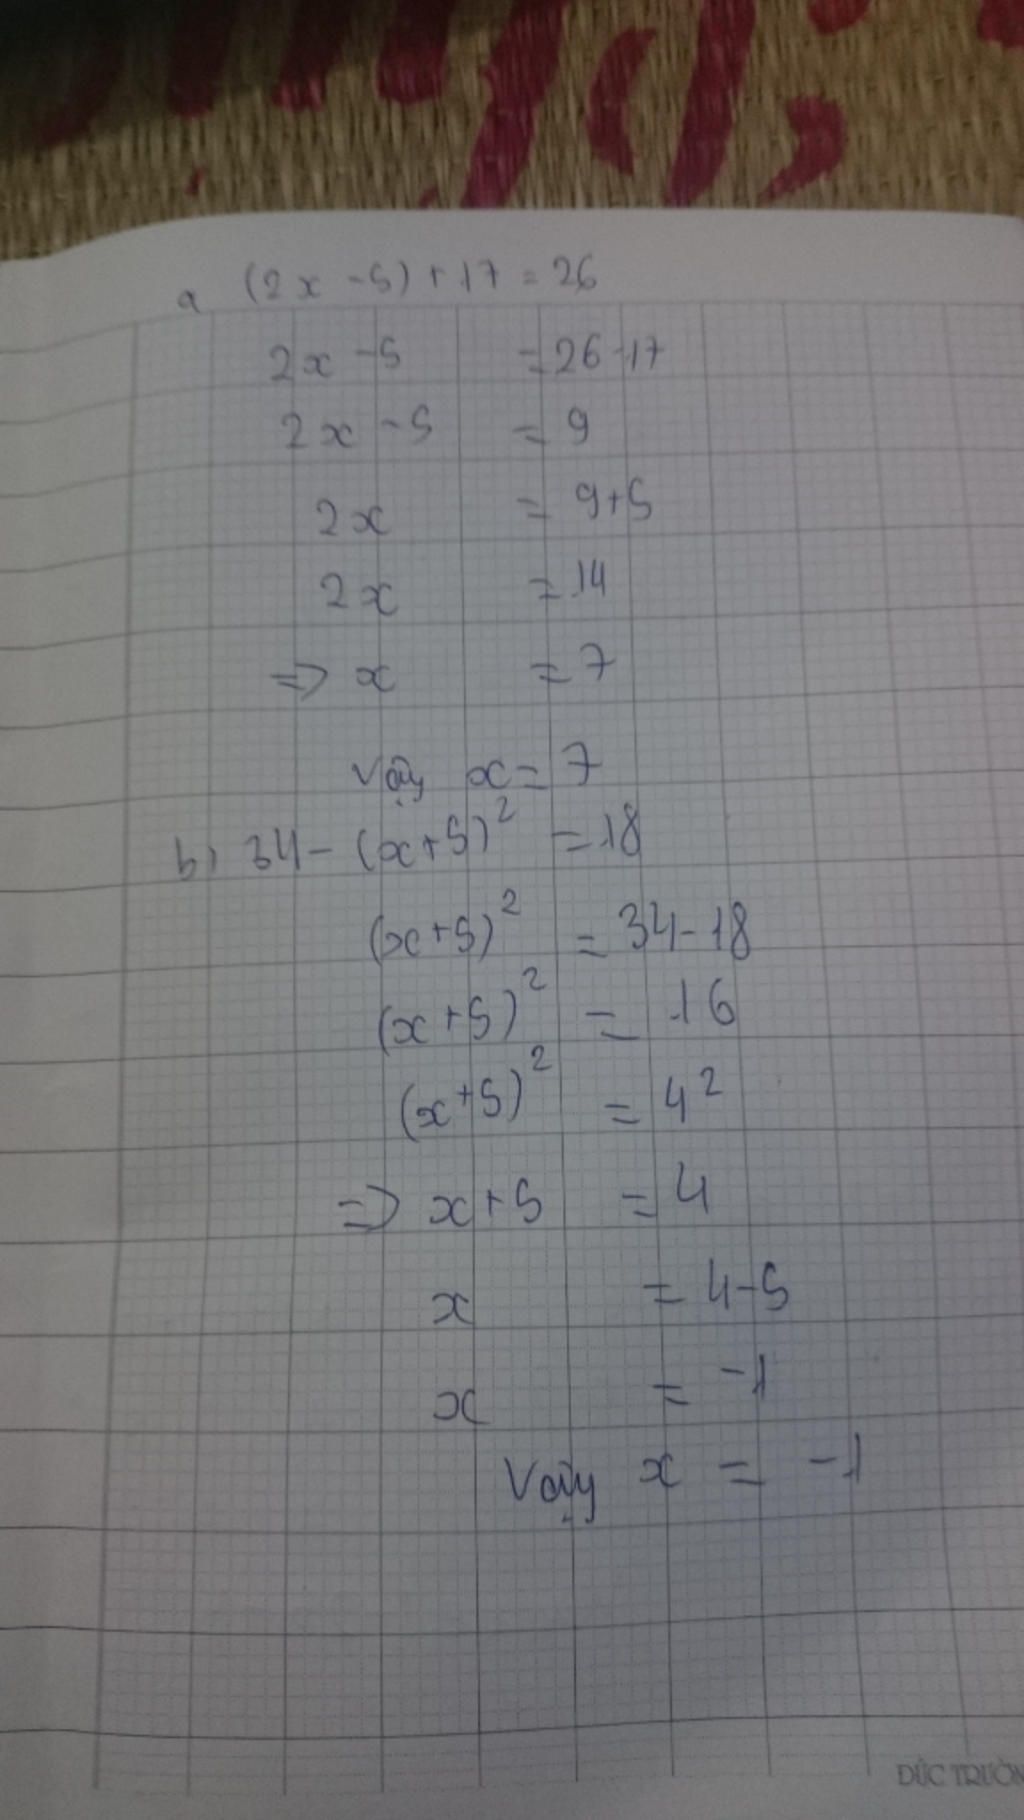 a (2x - 5) + 17 = 26
2x - 5 = 26 - 17
2x - 5 = 9
2x = 9 + 5
2x = 14
=> x = 7
Vậy x = 7
b) 34 - (x + 5)² = 18
(x + 5)² = 34 - 18
(x + 5)² = 16
(x + 5)² = 4²
=> x + 5 = 4
x = 4 - 5
x = -1
Vậy x = -1
ĐỨC TRƯỜN